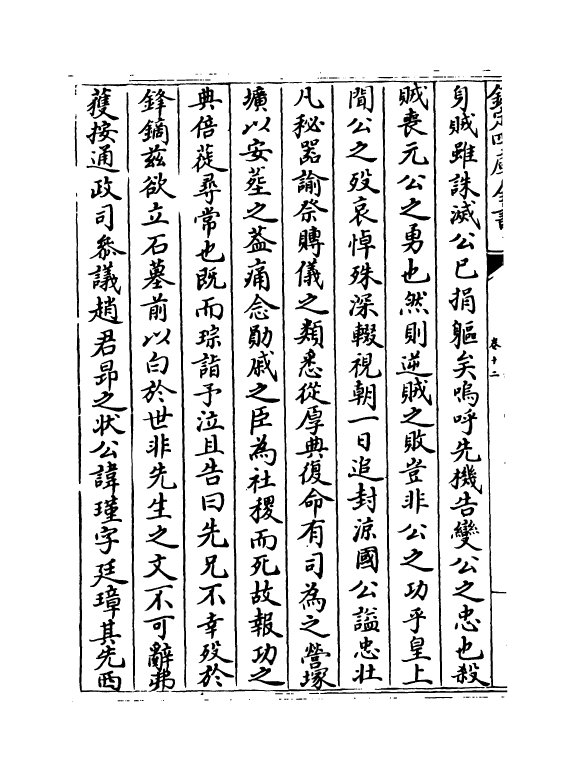 欽定四庫全書
卷十二
身賊雖誅滅公已捐軀矣嗚呼先機告變公之忠也殺
賊喪元公之勇也然則逆賊之敗豈非公之功乎皇上
聞公之歿哀悼殊深輟視朝一日追封涼國公諡忠壯
凡秘器諭祭賻儀之類悉從厚典復命有司為之營塚
壙以安葬之葢痛念勛戚之臣為社稷而死故報功之
典倍蓰尋常也既而琮詣予泣且告曰先兄不幸歿於
鋒鏑茲欲立石墓前以白於世非先生之文不可辭弗
獲按通政司參議趙君昂之狀公諱瑾字廷璋其先西